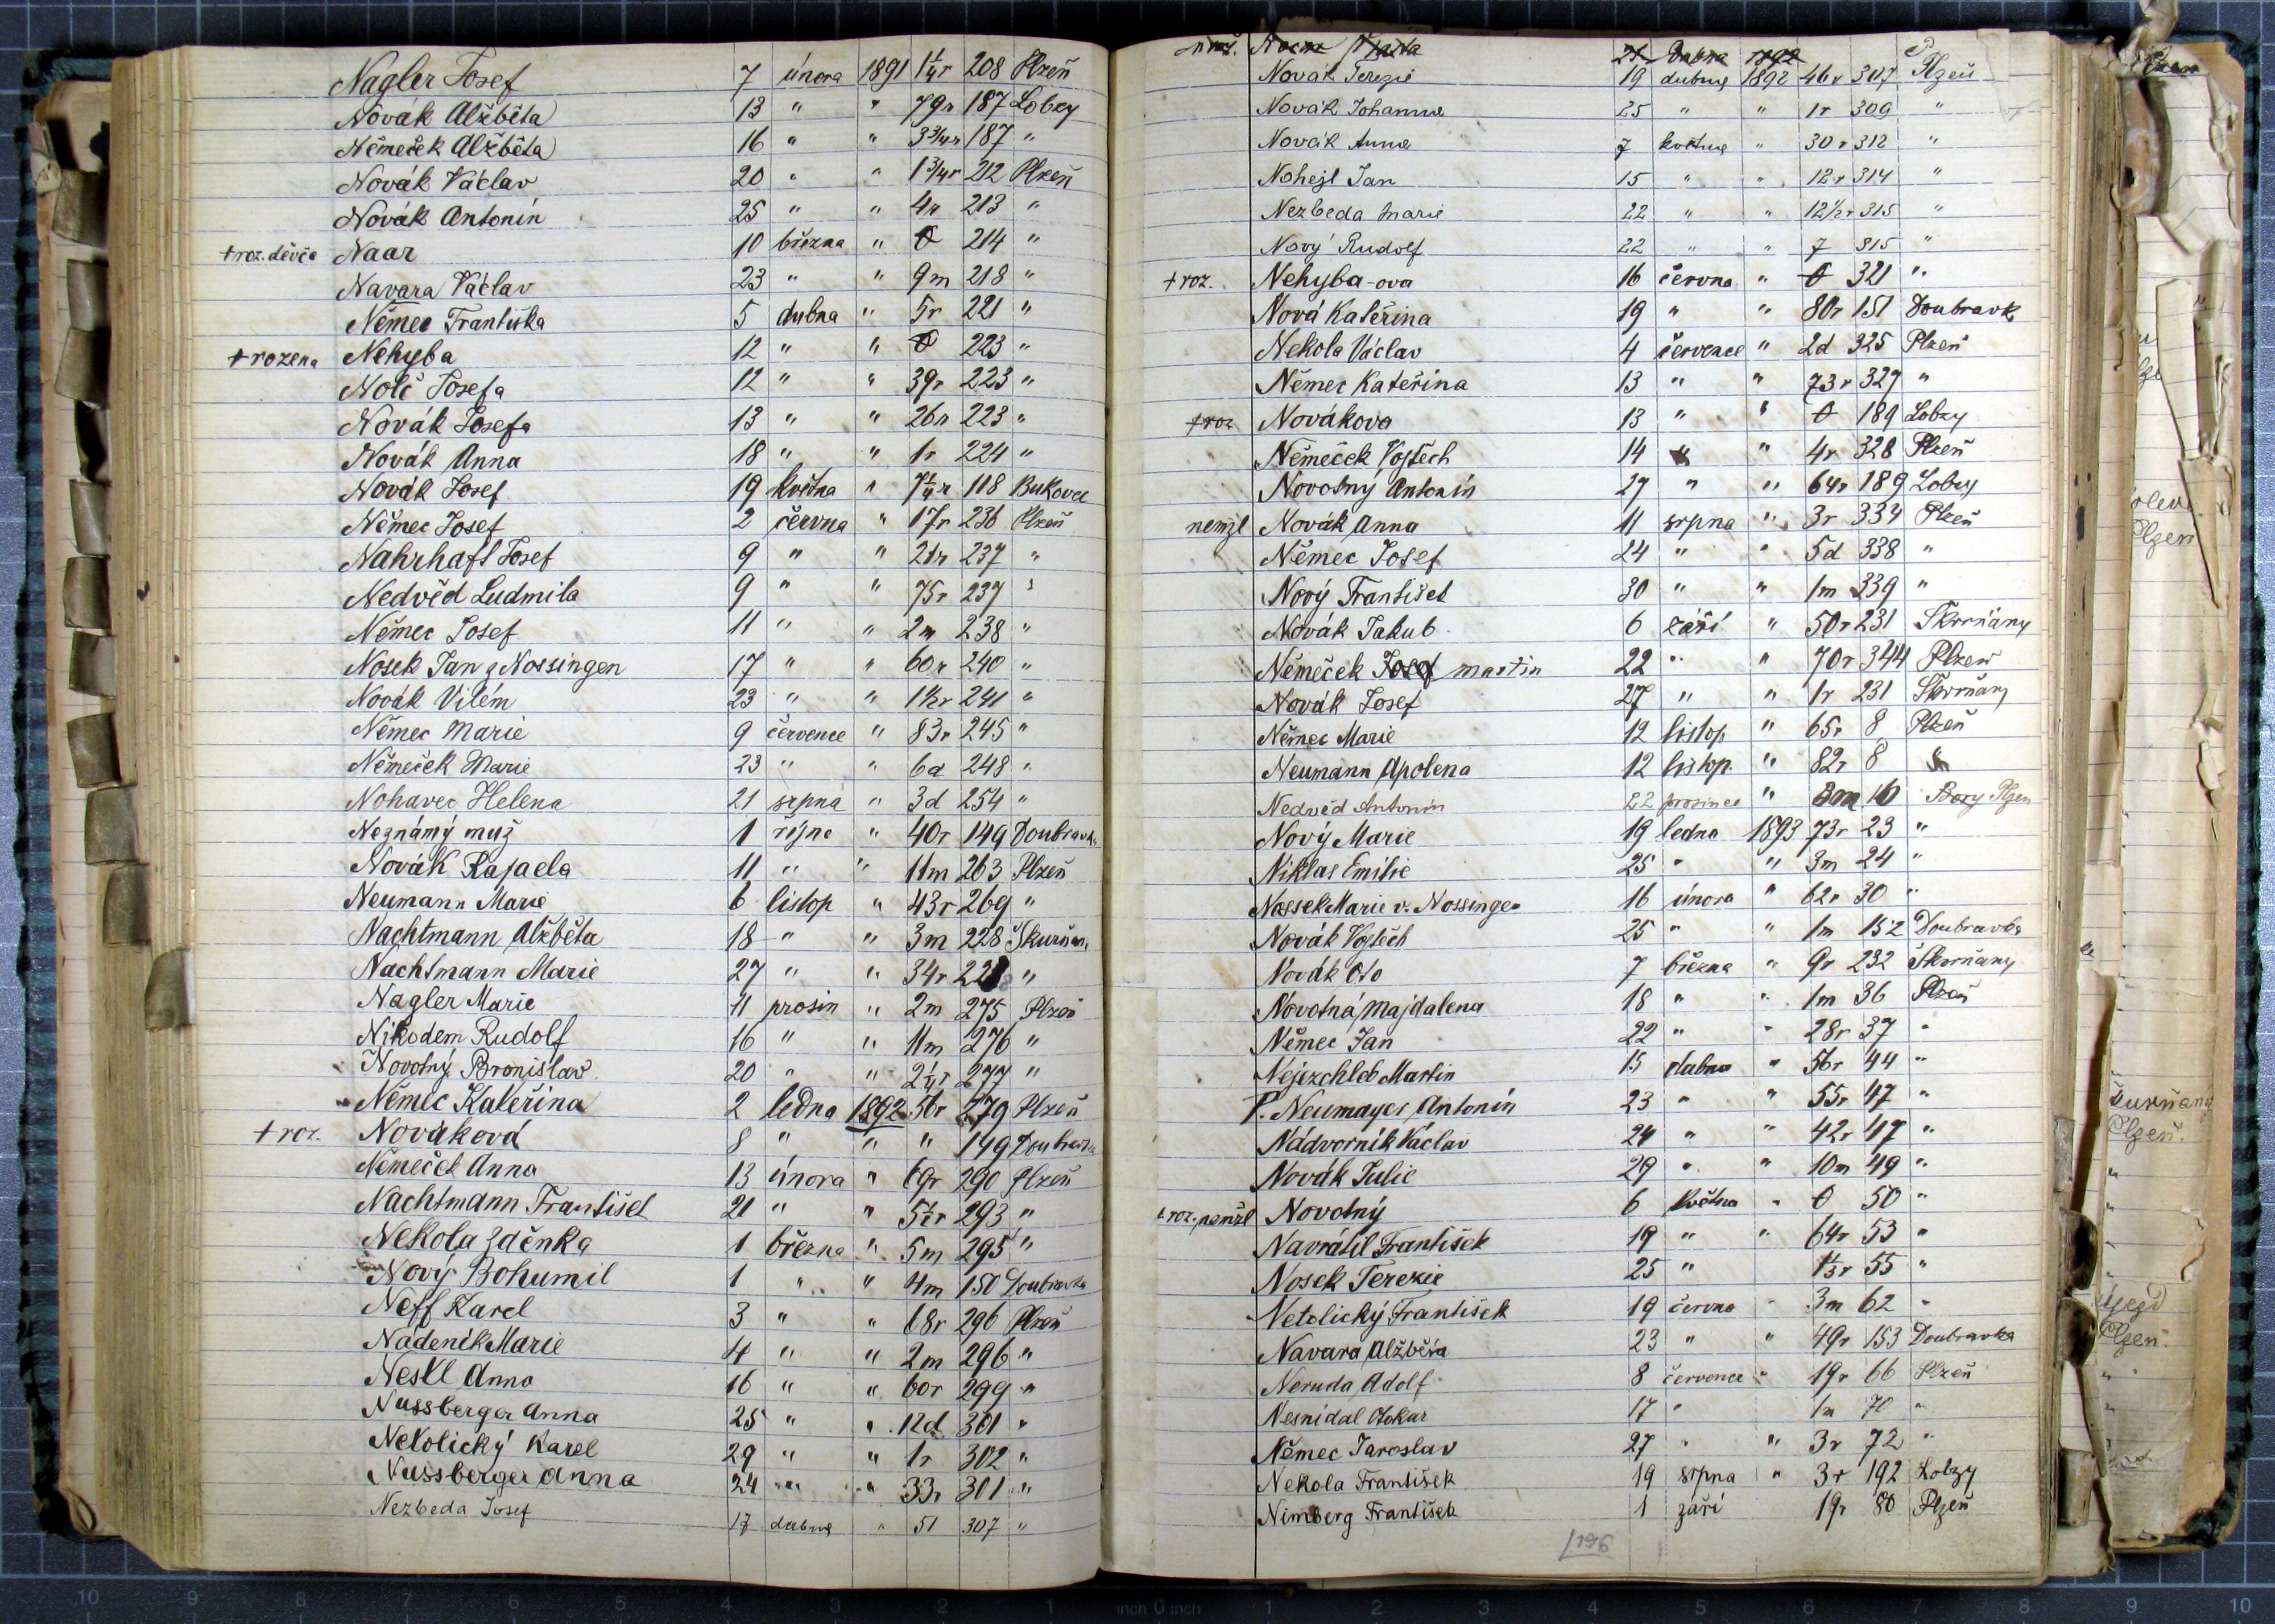 Nagler Josef 7 února 1891 1¼r 208 Plzeň
Novák Alžběta 13 " " 79r 187 Lobzy
Němeček Alžběta 16 " " 3¾r 187 "
Novák Václav 20 " " 1¾r 212 Plzeň
Novák Antonín 25 " " 4r 213 "
+roz. děvče Naar 10 března " 0 214 "
Navara Václav 23 " " 9m 218 "
Němec Františka 5 dubna " 5r 221 "
+rozena Nehyba 12 " " 0 223 "
Nolč Josefa 12 " " 39r 223 "
Novák Josefa 13 " " 26r 223 "
Novák Anna 18 " " 1r 224 "
Novák Josef 19 května " 7¼r 118 Bukovec
Němec Josef 2 června " 17r 236 Plzeň
Nahrhaft Josef 9 " " 21r 237 "
Nedvěd Ludmila 9 " " 75r 237 "
Němec Josef 11 " " 2m 238 "
Nosek Jan z Nossingen 17 " " 60r 240 "
Novák Vilém 23 " " 1½r 241 "
Němec Marie 9 července " 83r 245 "
Němeček Marie 23 " " 6d 248 "
Nohavec Helena 21 srpna " 3d 254 "
Neznámý muž 1 října " 40r 149 Doubravka
Novák Rafaela 11 " " 11m 263 Plzeň
Neumann Marie 6 listop " 43r 269 "
Nachtmann Alžběta 18 " " 3m 228 Skurňan
Nachtmann Marie 27 " " 34r "
Nagler Marie 11 prosin " 2m 275 Plzeň
Nikodem Rudolf 16 " " 11m 276 "
Novotný Bronislav 20 " " 2¼r 277 "
Němec Kateřina 2 ledna 1892 56r 279 Plzeň
+ roz. Nováková 8 " " " 149 Doubravka
Němeček Anna 13 února " 69r 290 Plzeň
Nachtmann František 21 " " 5½r 293 "
Nekola Zděnka 1 března " 5m 295 "
Nový Bohumil 1 " " 4m 150 Doubravka
Neff Karel 3 " " 68r 296 Plzeň
Nádeník Marie 4 " " 2m 296 "
Neskl Anna 16 " " 60r 299 "
Nussberger Anna 25 " " 12d 301 "
Netolický Karel 29 " " 1r 302 "
Nussberger Anna 24 " " 33r 301 "
Nezbeda Josef 17 dubna " 51 307 "
21 Dubna 1892
Novák Terezie 19 dubna 1892 46r 307 Plzeň
Novák Johanna 25 " " 1r 309 "
Novák Anna 7 května " 30r 312 "
Nohejl Jan 15 " " 12r 314 "
Nezbeda Marie 22 " " 12½r 315 "
Nový Rudolf 22 " " 7 315 "
+roz. Nehyba-ova 16 června " 0 321 "
Nová Kateřina 19 " " 80r 151 Doubravk
Nekola Václav 4 července " 2d 325 Plzeň
Němec Kateřina 13 " " 73r 327 "
+roz Novákova 13 " " 0 189 Lobzy
Němeček Vojtěch 14 " " 4r 328 Plzeň
Novotný Antonín 27 " " 64r 189 Lobzy
nemžl Novák Anna 11 srpna " 3r 334 Plzeň
Němec Josef 24 " " 5d 338 "
Nový František 30 " " 1m 339 "
Novák Jakub 6 září " 50r 231 Skvrňany
Němeček Josef martin 22 " " 70r 344 Plzeň
Novák Josef 27 " " 1r 231 Skvrňany
Němec Marie 12 listop " 65r 8 Plzeň
Neumann Apolena 12 listop. " 82r 8 "
Nedvěd Antonín 22 prosince " 3m 16 Bory Plzen
Nový Marie 19 ledna 1893 73r 23 "
Niklas Emilie 25 " " 3m 24 "
Nossek Marie v. Nossingen 16 února " 62r 30 "
Novák Vojtěch 25 " " 1m 152 Doubravka
Novák Oto 7 března " 9r 232 Skvrňany
Novotná Majdalena 18 " " 1m 36 Plzeň
Němec Jan 22 " " 28r 37 "
Nejezchleb Martin 15 dubna " 56r 44 "
P. Neumayer Antonín 23 " " 55r 47 "
Nádvorník Václav 24 " " 42r 47 "
Novák Julie 29 " " 10m 49 "
+roz. nemžl Novotný 6 května " 0 50 "
Navrátil František 19 " " 64r 53 "
Nosek Terezie 25 " " 55 "
Netolický František 19 června " 3m 62 "
Navara Alžběta 23 " " 49r 153 Doubravka
Neruda Adolf 8 července " 19r 66 Plzeň
Nesnídal Otokar 17 " 1m 70 "
Němec Jaroslav 27 " " 3r 72 "
Nekola František 19 srpna " 3r 192 Lobzy
Nimberg František 1 září 19r 80 Plzeň
Plzen
Skurňany
Plzeň.
Újezd
Plzeň.
10 9 8 7 6 5 4 3 2 1 inch 0 inch 1 2 3 4 5 6 7 8 9 10